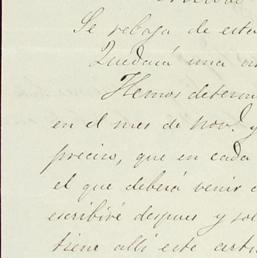 Se rebaja de esta
Quedará una
Hemos determi
en el mes de Nov.e y
preciso, que en cada
el que deberá venir
escribiré despues y sol
tiene alli este artic